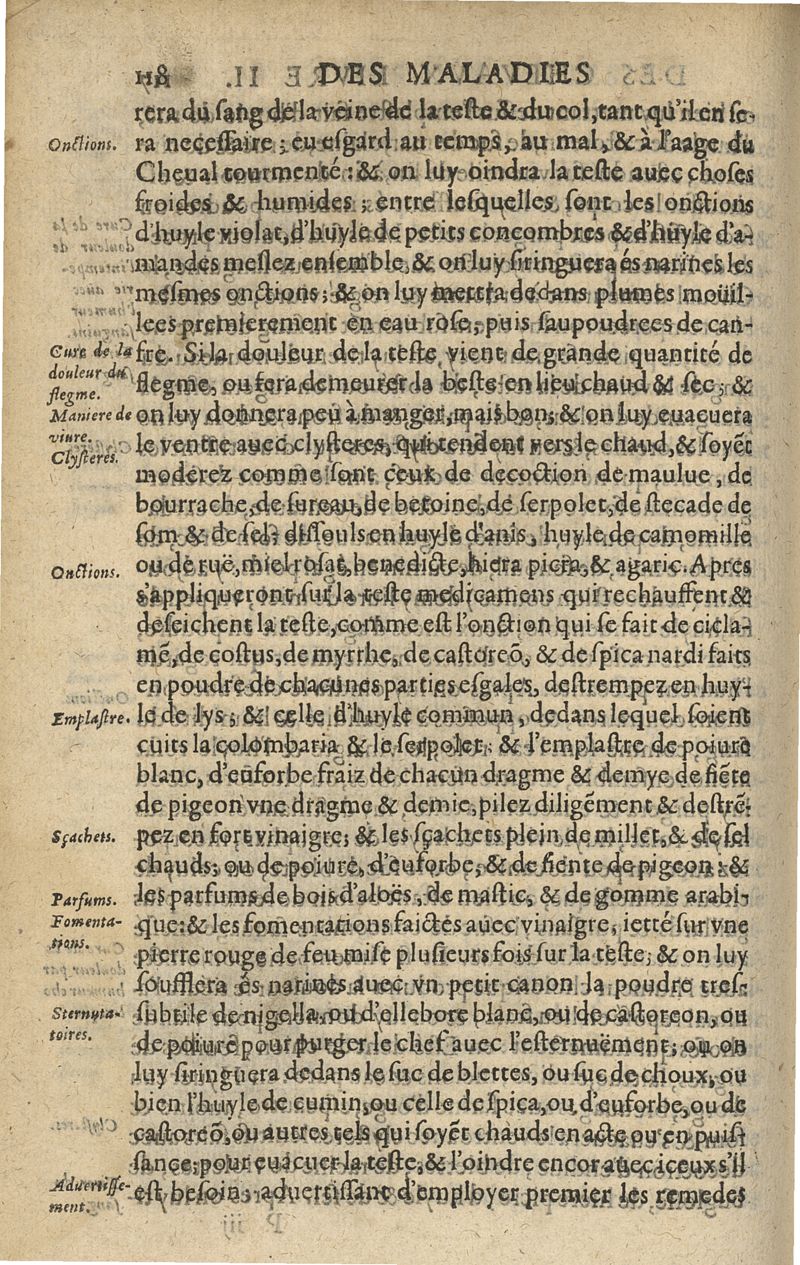 118 DES MALADIES
rera du sang de la veine de la teste & du col, tant qu'il en se-
Onctions.
ra necessaire; eu esgard au temps, au mal, & à l'aage du
Cheual tourmenté: & on luy oindra la teste auec choses
froides & humides; entre lesquelles sont les onctions
d'huyle violat, d'huyle de petits concombres & d'huyle d'a-
mandes meslez ensemble, & on luy siringuera és narines les
mesmes onctions; & on luy mettra dedans plumes moüil-
lees premierement en eau rose, puis saupoudrees de can-
Cure de la
douleur du
flegme.
fre. Si la douleur de la teste vient de grande quantité de
flegme, on fera demeurer la beste en lieu chaud & sec; &
Maniere de
viure.
on luy donnera peu à manger, mais bon; & on luy euacuera
Clysteres.
le ventre auec clysteres, qui tendent vers le chaud, & soyẽt
moderez comme sont ceux de decoction de maulue, de
bourrache, de sureau, de betoine, de serpolet, de stecade de
som & de sel: dissouls en huyle d'anis, huyle de camomille
Onctions.
ou de ruë, miel rosat, benedicte, hiera picra, & agaric. Apres
s'appliqueront sur la teste medicamens qui rechauffent &
deseichent la teste, comme est l'onction qui se fait de cicla-
mẽ, de costus, de myrrhe, de castoreõ, & de spica nardi faits
en poudre de chacunes parties esgales, destrempez en huy-
Emplastre.
le de lys; & celle d'huyle commun, dedans lequel soient
cuits la colombaria & le serpolet; & l'emplastre de poiure
blanc, d'euforbe fraiz de chacun dragme & demye de fiẽte
de pigeon vne dragme & demie, pilez diligẽment & destrẽ-
Sçachets.
pez en fort vinaigre; & les sçachets plein de millet, & de sel
chauds; ou de poiure, d'euforbe, & de fiente de pigeon: &
Parfums.
les parfums de bois d'aloës, de mastic, & de gomme arabi-
Fomenta-
tions.
que: & les fomentations faictes auec vinaigre, ietté sur vne
pierre rouge de feu mise plusieurs fois sur la teste; & on luy
soufflera és narines auec vn petit canon la poudre tres-
Sternuta-
toires.
subtile de nigella, ou d'ellebore blanc, ou de castoreon, ou
de poiure pour purger le chef auec l'esternuëment; ou on
luy siringuera dedans le suc de blettes, ou suc de choux, ou
bien l'huyle de cumin, ou celle de spica, ou d'euforbe, ou de
castoreõ, ou autres tels qui soyẽt chauds en acte ou en puis-
sance: pour euacuer la teste, & l'oindre encor auec iceux s'il
Aduertisse-
ment.
est besoin: aduertissant d'employer premier les remedes